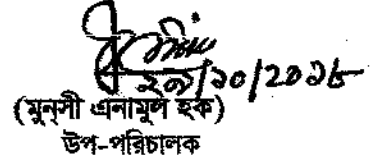 ২৯/১০/২০১৮
(মুন্সী এনামুল হক)
উপ-পরিচালক